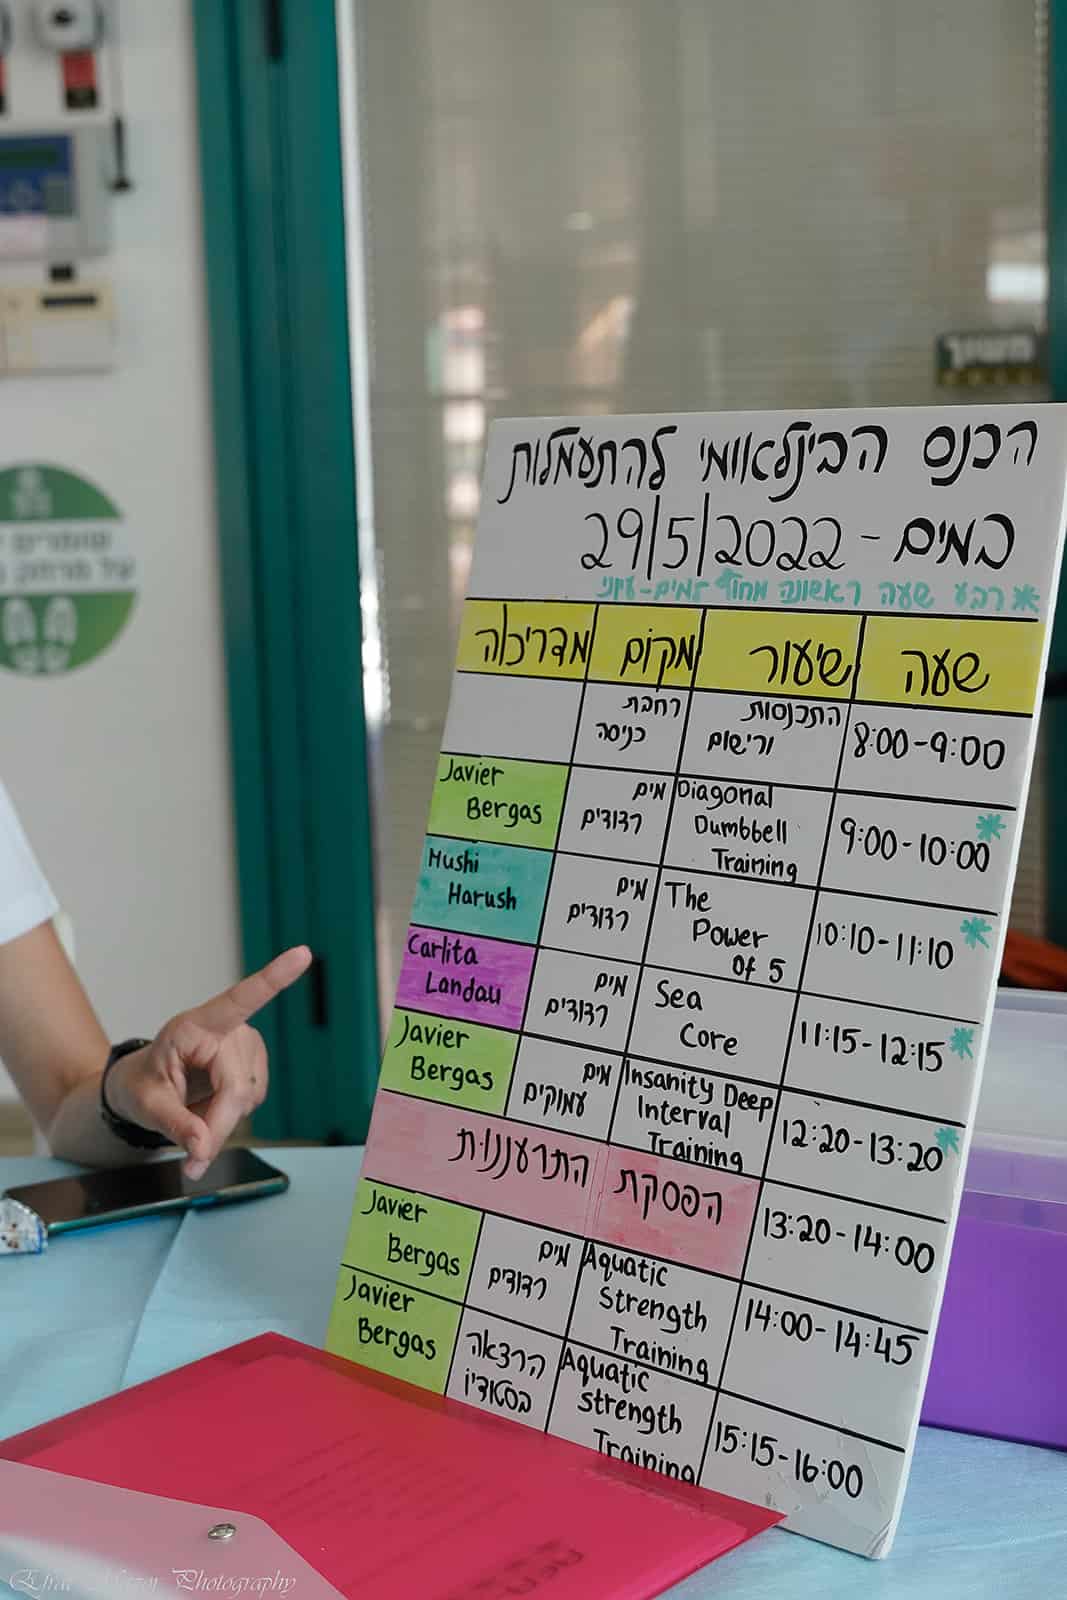 משיך
GOLD
שומרים
על מרחק
הכנס הבינלאומי להתעמלות
במים - 29/5/2022
*רבע שעה ראשונה מחוץ למים-עיוני
שעה שיעור מקום מדריכ/ה
8:00-9:00 התכנסות ורישום רחבת כניסה
9:00-10:00* Diagonal Dumbbell Training מים רדודים Javier Bergas
10:10-11:10* The Power Of 5 מים רדודים Mushi Harush
11:15-12:15* Sea Core מים רדודים Carlita Landau
12:20-13:20* Insanity Deep Interval Training מים עמוקים Javier Bergas
13:20-14:00 הפסקת התרעננות
14:00-14:45 Aquatic Strength Training מים רדודים Javier Bergas
15:15-16:00 Aquatic Strength Training הרצאה בסטודיו Javier Bergas
Efrat Mazor Photography